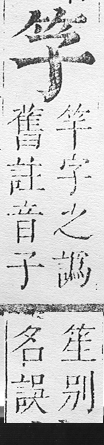 竽字之譌
舊註音子
笙别
名誤